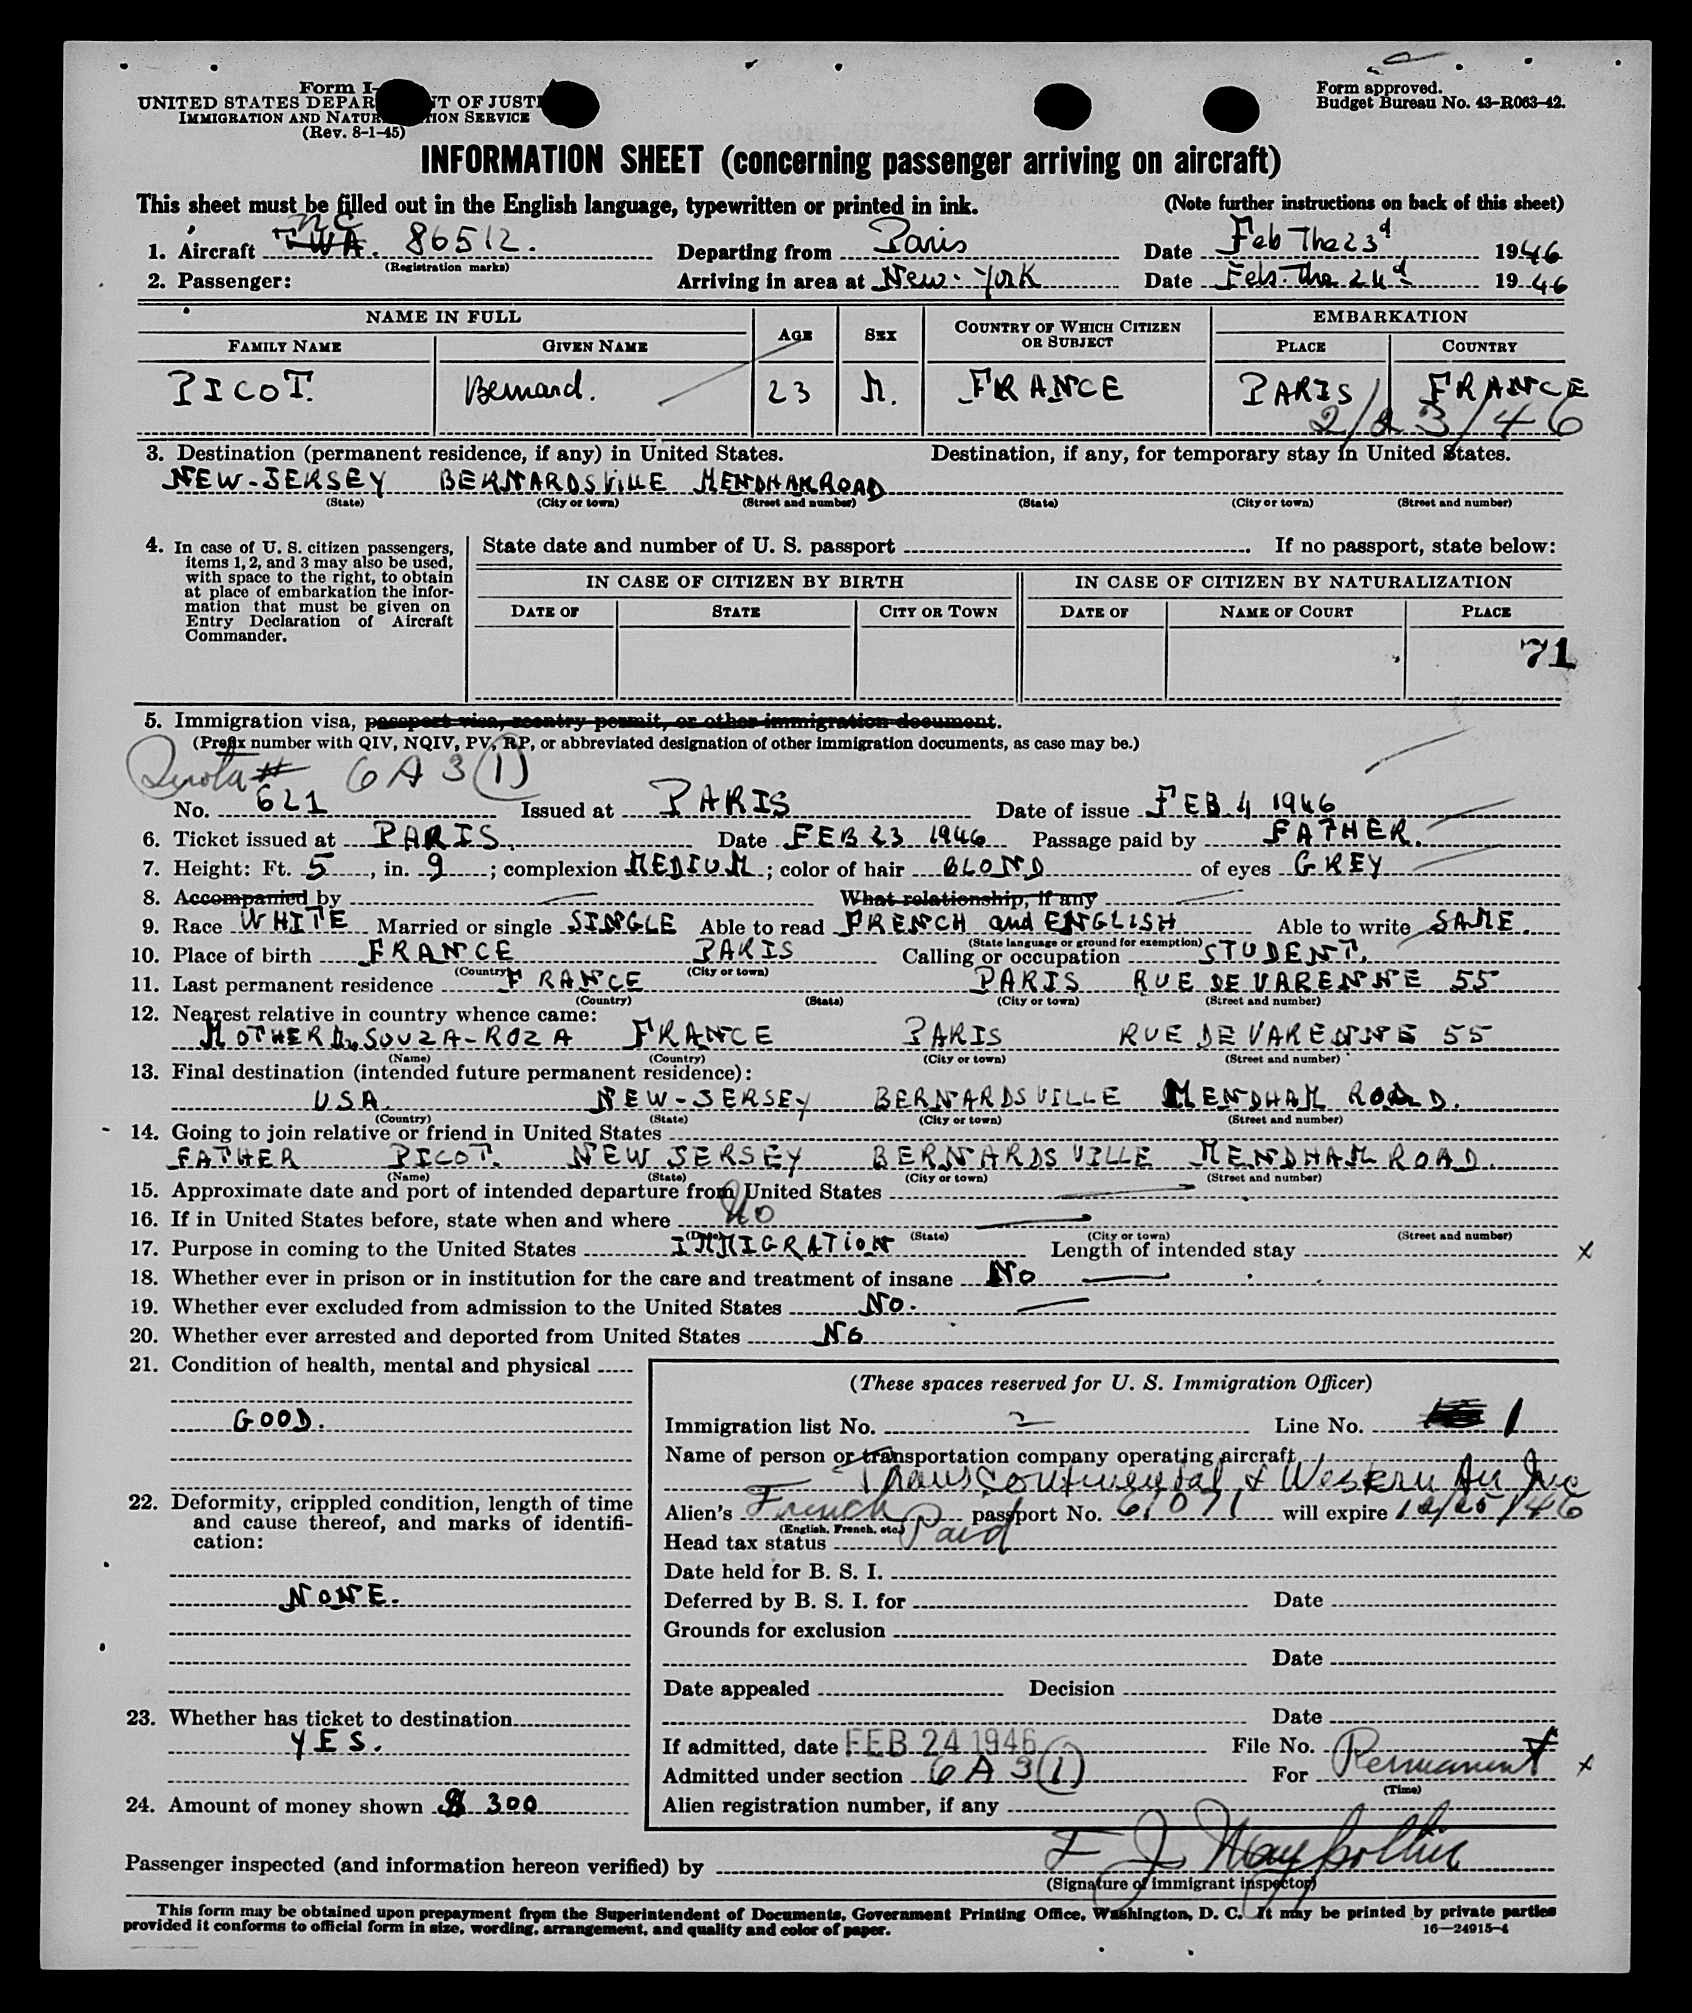 Form I-
UNITED STATES DEPAR NT OF JUSTI
IMMIGRATION AND NATUR TION SERVICE
(Rev. 8-1-45)
Form approved.
Budget Bureau No. 43-R063-42.
INFORMATION SHEET (concerning passenger arriving on aircraft)
This sheet must be filled out in the English language, typewritten or printed in ink. (Note further instructions on back of this sheet)
NC
1. Aircraft TWA. 86512. Departing from Paris Date Feb The 23d 1946
(Registration marks)
2. Passenger: Arriving in area at New-York Date Feb. The 24d 1946
NAME IN FULL AGE SEX COUNTRY OF WHICH CITIZEN OR SUBJECT EMBARKATION
FAMILY NAME GIVEN NAME PLACE COUNTRY
PICOT. Bernard. 23 M. FRANCE PARIS FRANCE
2/23/46
3. Destination (permanent residence, if any) in United States. Destination, if any, for temporary stay in United States.
NEW-JERSEY BERNARDSVILLE MENDHAM ROAD
(State) (City or town) (Street and number) (State) (City or town) (Street and number)
4. In case of U. S. citizen passengers, items 1, 2, and 3 may also be used, with space to the right, to obtain at place of embarkation the information that must be given on Entry Declaration of Aircraft Commander.
State date and number of U. S. passport . If no passport, state below:
IN CASE OF CITIZEN BY BIRTH IN CASE OF CITIZEN BY NATURALIZATION
DATE OF STATE CITY OR TOWN DATE OF NAME OF COURT PLACE
71
5. Immigration visa, passport visa, reentry permit, or other immigration document.
(Prefix number with QIV, NQIV, PV, RP, or abbreviated designation of other immigration documents, as case may be.)
Quota # 6 A 3 (1)
No. 621 Issued at PARIS Date of issue FEB 4 1946
6. Ticket issued at PARIS. Date FEB 23 1946 Passage paid by FATHER.
7. Height: Ft. 5, in. 9; complexion MEDIUM; color of hair BLOND of eyes GREY
8. Accompanied by What relationship, if any
9. Race WHITE Married or single SINGLE Able to read FRENCH and ENGLISH Able to write SAME.
(State language or ground for exemption)
10. Place of birth FRANCE PARIS Calling or occupation STUDENT.
(Country) (City or town)
11. Last permanent residence FRANCE PARIS RUE DE VARENNE 55
(Country) (State) (City or town) (Street and number)
12. Nearest relative in country whence came:
MOTHER SOUZA-ROZA FRANCE PARIS RUE DE VARENNE 55
(Name) (Country) (City or town) (Street and number)
13. Final destination (intended future permanent residence):
USA. NEW-JERSEY BERNARDSVILLE MENDHAM ROAD.
(Country) (State) (City or town) (Street and number)
14. Going to join relative or friend in United States
FATHER PICOT. NEW JERSEY BERNARDSVILLE MENDHAM ROAD.
(Name) (State) (City or town) (Street and number)
15. Approximate date and port of intended departure from United States
16. If in United States before, state when and where No
(State) (City or town) (Street and number)
17. Purpose in coming to the United States IMMIGRATION Length of intended stay x
18. Whether ever in prison or in institution for the care and treatment of insane No
19. Whether ever excluded from admission to the United States No.
20. Whether ever arrested and deported from United States No
21. Condition of health, mental and physical
GOOD.
22. Deformity, crippled condition, length of time and cause thereof, and marks of identification:
NONE.
23. Whether has ticket to destination
YES.
24. Amount of money shown $ 300
(These spaces reserved for U. S. Immigration Officer)
Immigration list No. 2 Line No. 1
Name of person or transportation company operating aircraft
Transcontinental & Western Air Inc
Alien's French passport No. 61071 will expire 12/25/46
(English, French, etc.)
Head tax status Paid
Date held for B. S. I.
Deferred by B. S. I. for Date
Grounds for exclusion
Date
Date appealed Decision
Date
If admitted, date FEB 24 1946 File No.
Admitted under section 6 A 3 (1) For Permanent x
(Time)
Alien registration number, if any
Passenger inspected (and information hereon verified) by
(Signature of immigrant inspector)
This form may be obtained upon prepayment from the Superintendent of Documents, Government Printing Office, Washington, D. C. It may be printed by private parties
provided it conforms to official form in size, wording, arrangement, and quality and color of paper. 16—24915-4